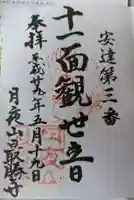 安達第三番
十一面観世音
奉拝
平成廿九年五月十九日
月夜山最勝寺